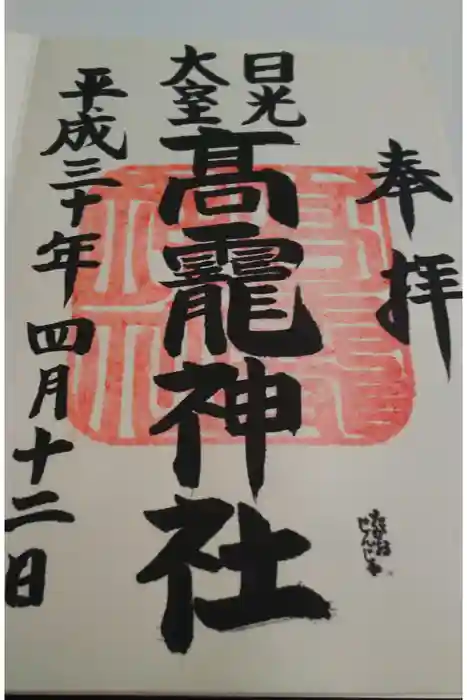 奉拝
日光
大室
髙龗神社
平成三十年四月十二日
たかお
じんじゃ